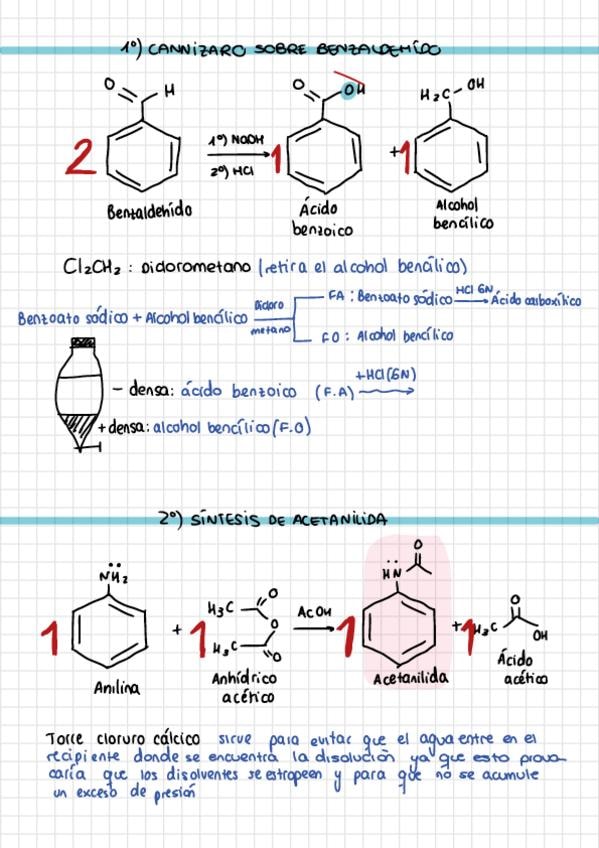 1º) CANNIZARO SOBRE BENZALDEHÍDO
O H
O OH
H2C-OH
2
1º) NaOH
2º) HCl
1
+1
Benzaldehído
Ácido
benzoico
Alcohol
bencílico
Cl2CH2 : Diclorometano (retira el alcohol bencílico)
Benzoato sódico + Alcohol bencílico
Dicloro
metano
FA : Benzoato sódico
HCl 6N
Ácido carboxílico
FO : Alcohol bencílico
- densa: ácido benzoico (F.A)
+HCl(6N)
+ densa: alcohol bencílico (F.O)
2º) SÍNTESIS DE ACETANILIDA
NH2
1
+1
H3C O
O
H3C O
AcOH
1
HN O
+1
H3C O
OH
Anilina
Anhídrico
acético
Acetanilida
Ácido
acético
Torre cloruro cálcico sirve para evitar que el agua entre en el
recipiente donde se encuentra la disolución ya que esto provo-
caría que los disolventes se estropeen y para que no se acumule
un exceso de presión